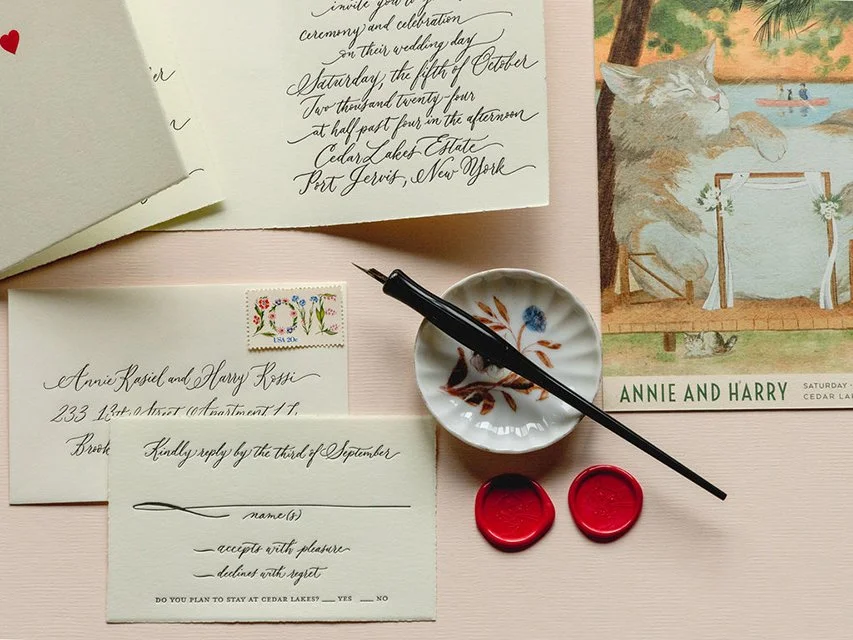 invite you to
ceremony and celebration
on their wedding day
Saturday, the fifth of October
Two thousand twenty-four
at half past four in the afternoon
Cedar Lakes Estate
Port Jervis, New York
LOVE
USA 20c
Annie Rasiel and Harry Rossi
233 13th Street Apartment
Kindly reply by the third of September
name(s)
accepts with pleasure
declines with regret
DO YOU PLAN TO STAY AT CEDAR LAKES? ___ YES ___ NO
ANNIE AND HARRY
SATURDAY
CEDAR